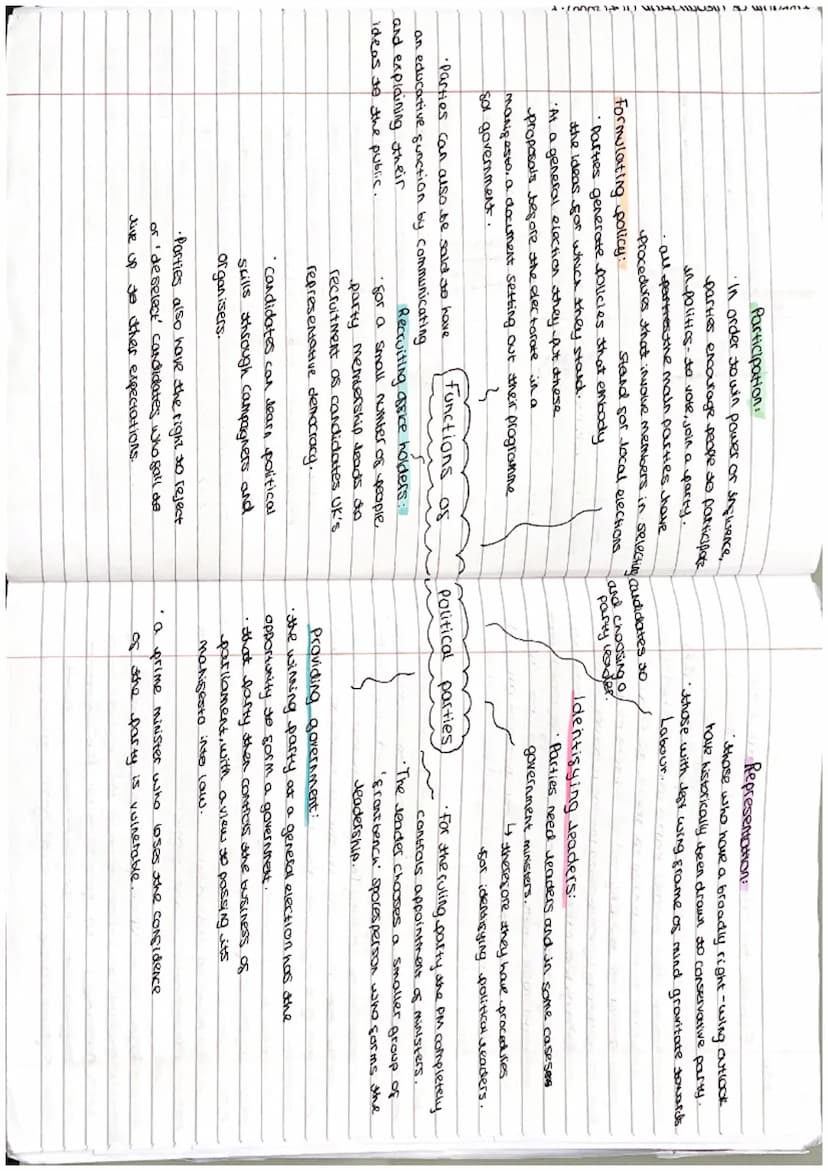 Participation:
· In order to win power or influence,
parties encourage people to participate
in politics - to vote, join a party.
· all parties the main parties have
procedures that involve members in selecting candidates to
stand for local elections and choosing a
party leader.
Formulating policy:
· Parties generate policies that embody
the ideas for which they stand.
· At a general election they put these
proposals before the electorate in a
manifesto, a document setting out their programme
for government.
· Parties can also be said to have
an educative function by communicating
and explaining their
ideas to the public.
Recruiting office holders:
· for a small number of people,
party membership leads to
recruitment as candidates UK's
representative democracy.
· candidates can learn political
skills through campaigners and
organisers.
· Parties also have the right to reject
or 'deselect' candidates, who fail to
live up to their expectations.
Functions of Political parties
Representation:
· those who have a broadly right-wing outlook
have historically been drawn to conservative party.
· those with left wing frame of mind gravitate towards
Labour.
Identifying leaders:
· Parties need leaders and in some cases
government ministers.
↳ therefore they have procedures
for identifying political leaders.
· For the ruling party the PM completely
controls appointment of ministers.
· The leader chooses a smaller group of
'frontbench' spokesperson who forms the
leadership.
Providing government:
· the winning party at a general election has the
opportunity to form a government.
· that party then controls the business of
parliament, with a view to passing its
manifesto into law.
· a prime minister who loses the confidence
of the party is vulnerable.